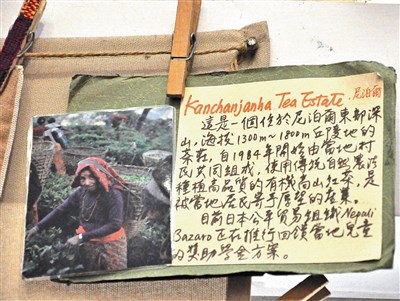 Kanchanjanha Tea Estate．尼泊爾
這是一個位於尼泊爾東部深
山，海拔1300m～1800m丘陵地的
茶莊，自1984年開始由當地村
民共同組成，使用傳統自然農法
種植高品質的有機高山紅茶，是
被當地居民寄予厚望的產業。
目前日本公平貿易組織Nepali
Bazaro正在推行回饋當地兒童
的獎助學金方案。